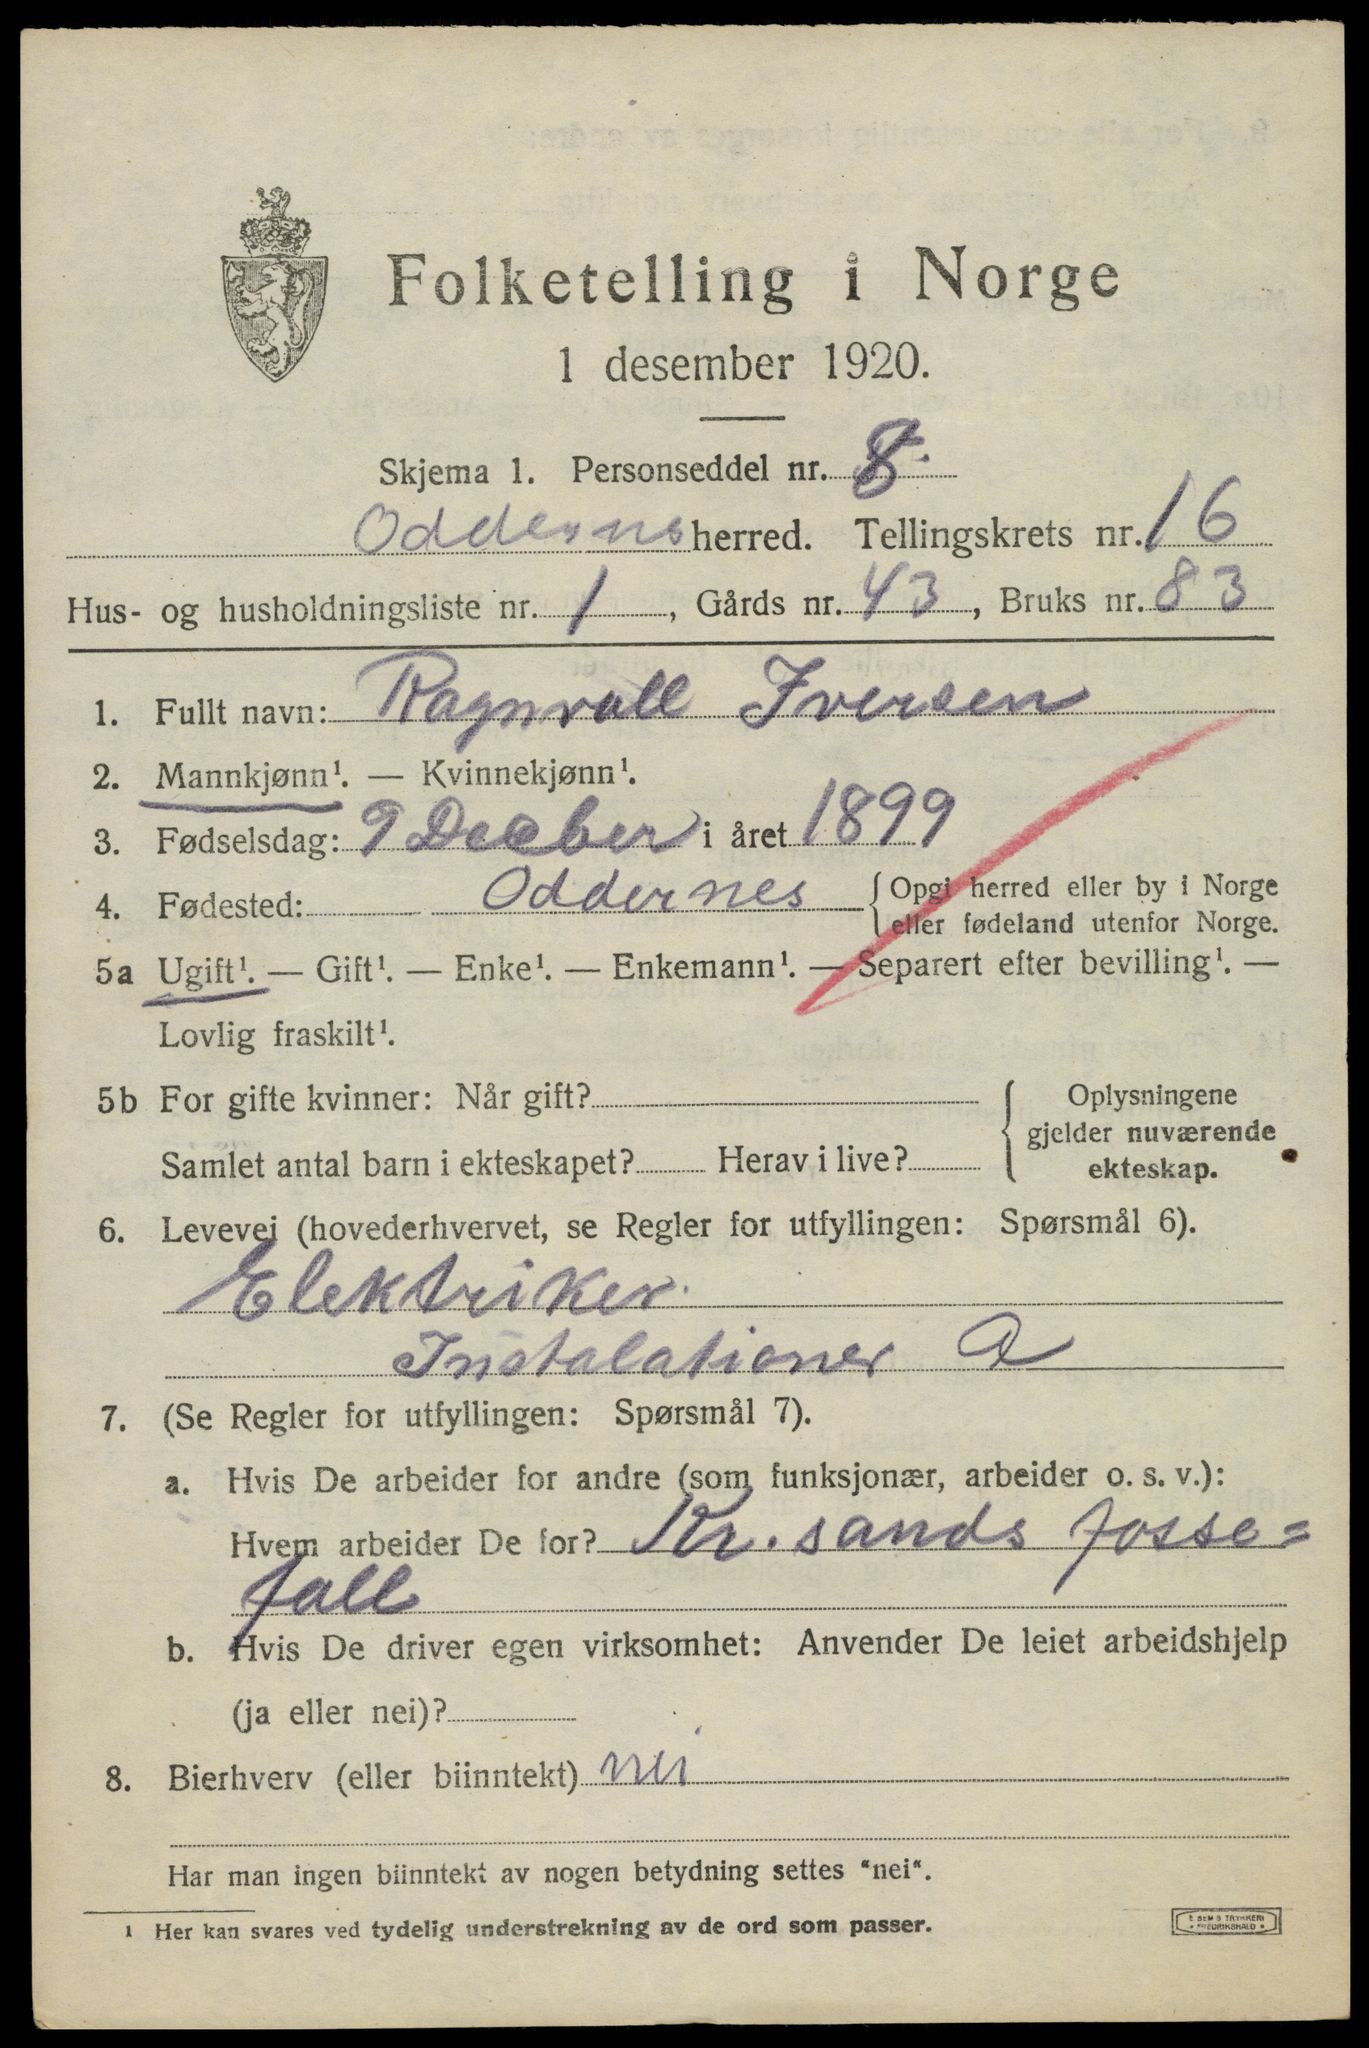 Folketelling i Norge
1 desember 1920.
Skjema 1. Personseddel nr. 8.
Oddernes herred. Tellingskrets nr. 16
Hus- og husholdningsliste nr. 1, Gårds nr. 43, Bruks nr. 83
1. Fullt navn: Ragnvall Iversen
2. Mannkjønn¹. — Kvinnekjønn¹.
3. Fødselsdag: 9 Decber i året 1899
4. Fødested: Oddernes { Opgi herred eller by i Norge
eller fødeland utenfor Norge.
5a Ugift¹. — Gift¹. — Enke¹. — Enkemann¹. — Separert efter bevilling¹. —
Lovlig fraskilt¹.
5b For gifte kvinner: Når gift? { Oplysningene
gjelder nuværende
Samlet antal barn i ekteskapet? Herav i live? ekteskap.
6. Levevei (hovederhvervet, se Regler for utfyllingen: Spørsmål 6).
Elektriker.
Instalationer A
7. (Se Regler for utfyllingen: Spørsmål 7).
a. Hvis De arbeider for andre (som funksjonær, arbeider o. s. v.):
Hvem arbeider De for? Kr. sands fosse=
fall
b. Hvis De driver egen virksomhet: Anvender De leiet arbeidshjelp
(ja eller nei)?
8. Bierhverv (eller biinntekt) nei
Har man ingen biinntekt av nogen betydning settes "nei".
1 Her kan svares ved tydelig understrekning av de ord som passer.
TRYKKERI
FREDRIKSHALD